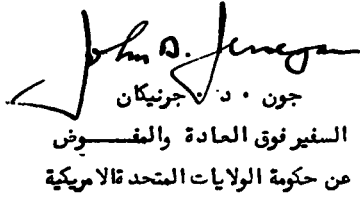 John D. Jernegan
جون ٠ د ٠ جرنيكان
السفير فوق العادة والمفـــوض
عن حكومة الولايات المتحدة الامريكية